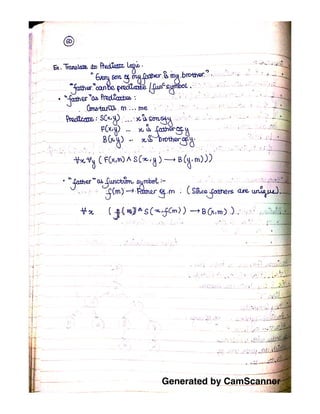 60
Ex. Translate to Predicate Logic.
"Every son of my father is my brother".
"father" can be predicate / funⁿ symbol.
• "father" as Predicate :
Constants m ... me
Predicate : S(x,y) ... x is son of y
F(x,y) ... x is father of y
B(x,y) ... x is brother of y
∀x ∀y ( F(x,m) ∧ S(x,y) → B(y,m)))
• "father" as function symbol :-
f(m) → Father of m . ( Since fathers are unique).
∀x ( S(x,f(m)) → B(x,m) ).
Generated by CamScanner